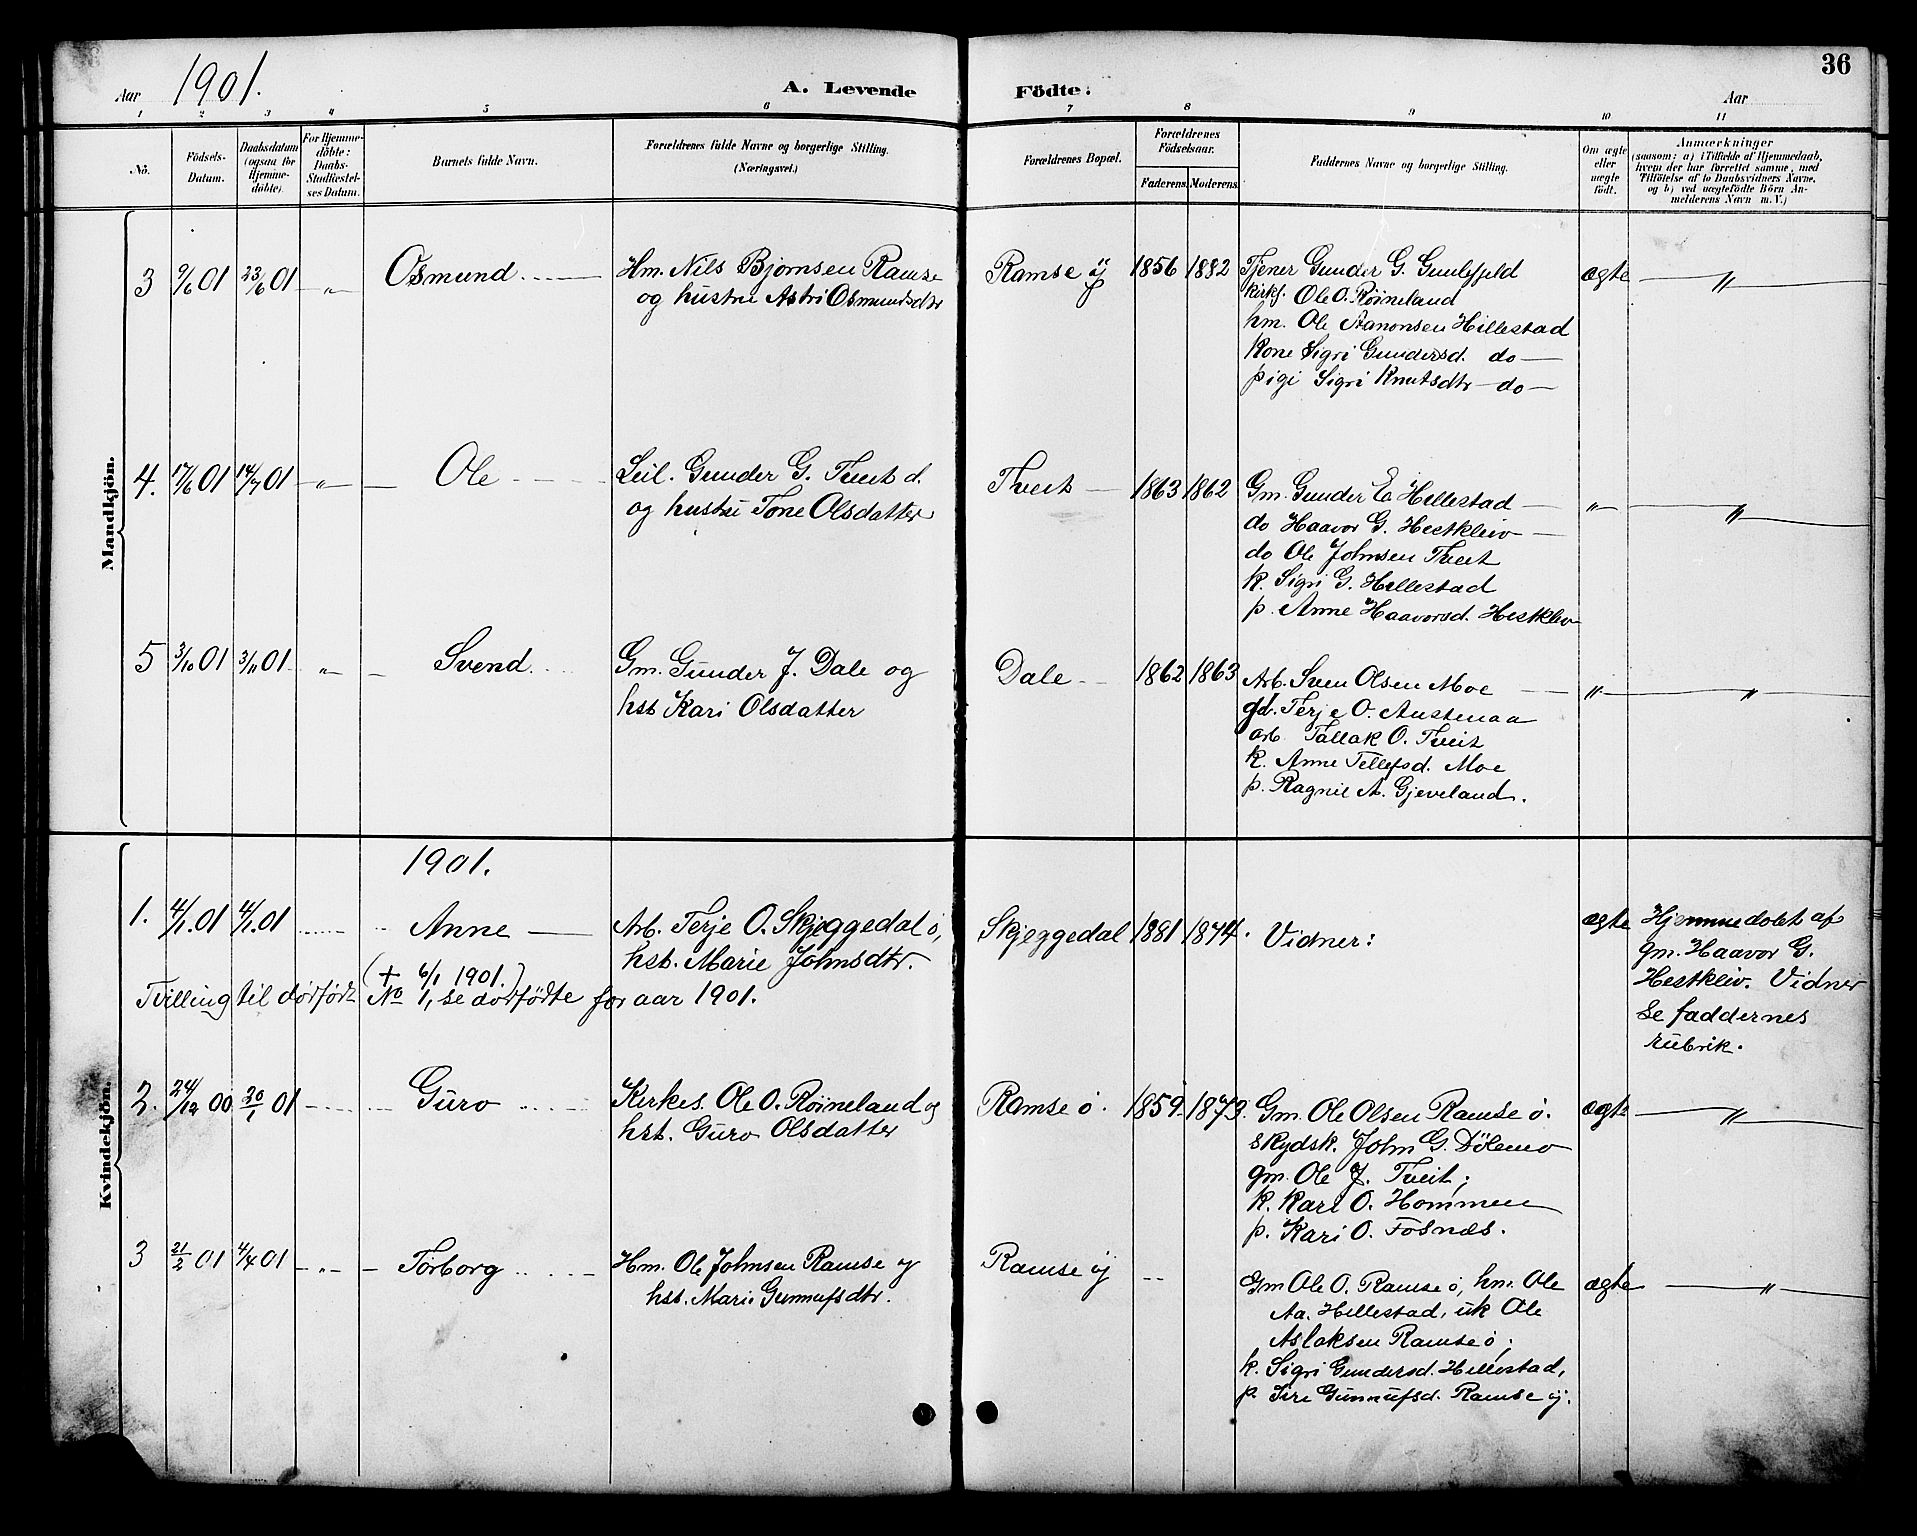 36
Aar 1901. A. Levende Födte: Aar
1 2 3 4 5 6 7 8 9 10 11
No. Födsels-Datum. Daabsdatum (ogsaa for Hjemmedöbte). For Hjemmedöbte: Daabs-Stadfestelses Datum. Barnets fulde Navn. Forældrenes fulde Navne og borgerlige Stilling. (Næringsvei.) Forældrenes Bopæl. Forældrenes Födselsaar. Faderens. Moderens. Faddernes Navne og borgerlige Stilling. Om ægte eller uægte födt. Anmærkninger (saasom: a) i Tilfælde af Hjemmedaab, hvem der har forrettet samme, med Tilföielse af to Daabsvidners Navne, og b) ved uægtefödte Börn Anmelderens Navn m. V.)
Mandkjön.
3 9/6 01 23/6 01 " Osmund Hm. Nils Bjørnsen Ramse Ramse ÿ 1856 1882 Tjener Gunder G. Gunlefjeld ægte "
og hustru Astri Osmundsdtr kirks. Ole O. Røineland
hm. Ole Aanonsen Hillestad
Kone Sigri Gundersd. do
pigi Sigri Knutsdtr do
4. 17/6 01 14/7 01 " Ole Leil. Gunder G. Tveit d. Tveit 1863 1862 Gm. Gunder E. Hillestad " "
og hustru Tone Olsdatter do Haavor G. Hestkleiv
do Ole Johnsen Tveit
k. Sigri G. Hillestad
p. Anne Haavorsd. Hestkleiv
5 3/10 01 3/11 01 " Svend Gm. Gunder J. Dale og Dale 1862 1863 Arb. Sven Olsen Moe " "
hst. Kari Olsdatter gd. Terje O. Austenaa
arb. Tallak O. Tveit
k. Anne Tellefsd. Moe
p. Ragnil A. Gjeveland.
Kvindekjön.
1901.
1. 4/1 01 4/1 01 Anne Arb. Terje O. Skjeggedal ö, Skjeggedal 1881 1874. Vidner: ægte Hjemmedøbt af
hst. Marie Johnsdtr. gm. Haavor G.
(+ 6/1 1901.) Hestkleiv. Vidner
Tvilling til dødfødt No 1, se dødfødte for aar 1901. se faddernes
rubrik.
2. 24/12 00 20/1 01 Guro Kirkes. Ole O. Røineland og Ramse ö. 1859 1873 Gm. Ole Olsen Ramse ö. ægte "
hst. Guro Olsdatter skydsk. John G. Dölemo
gm. Ole J. Tveit;
k. Kari O. Hommen
p. Kari O. Fosnæs.
3 21/2 01 4/4 01 " Torborg Hm. Ole Johnsen Ramse ÿ Ramse ÿ Gm Ole O. Ramse ö, hm. Ole ægte "
hst. Mari Gunnufsdtr. Aa. Hillestad, uk Ole
Aslaksen Ramse ö;
k. Sigri Gundersd. Hillestad,
p. Siri Gunnufsd. Ramse ÿ.